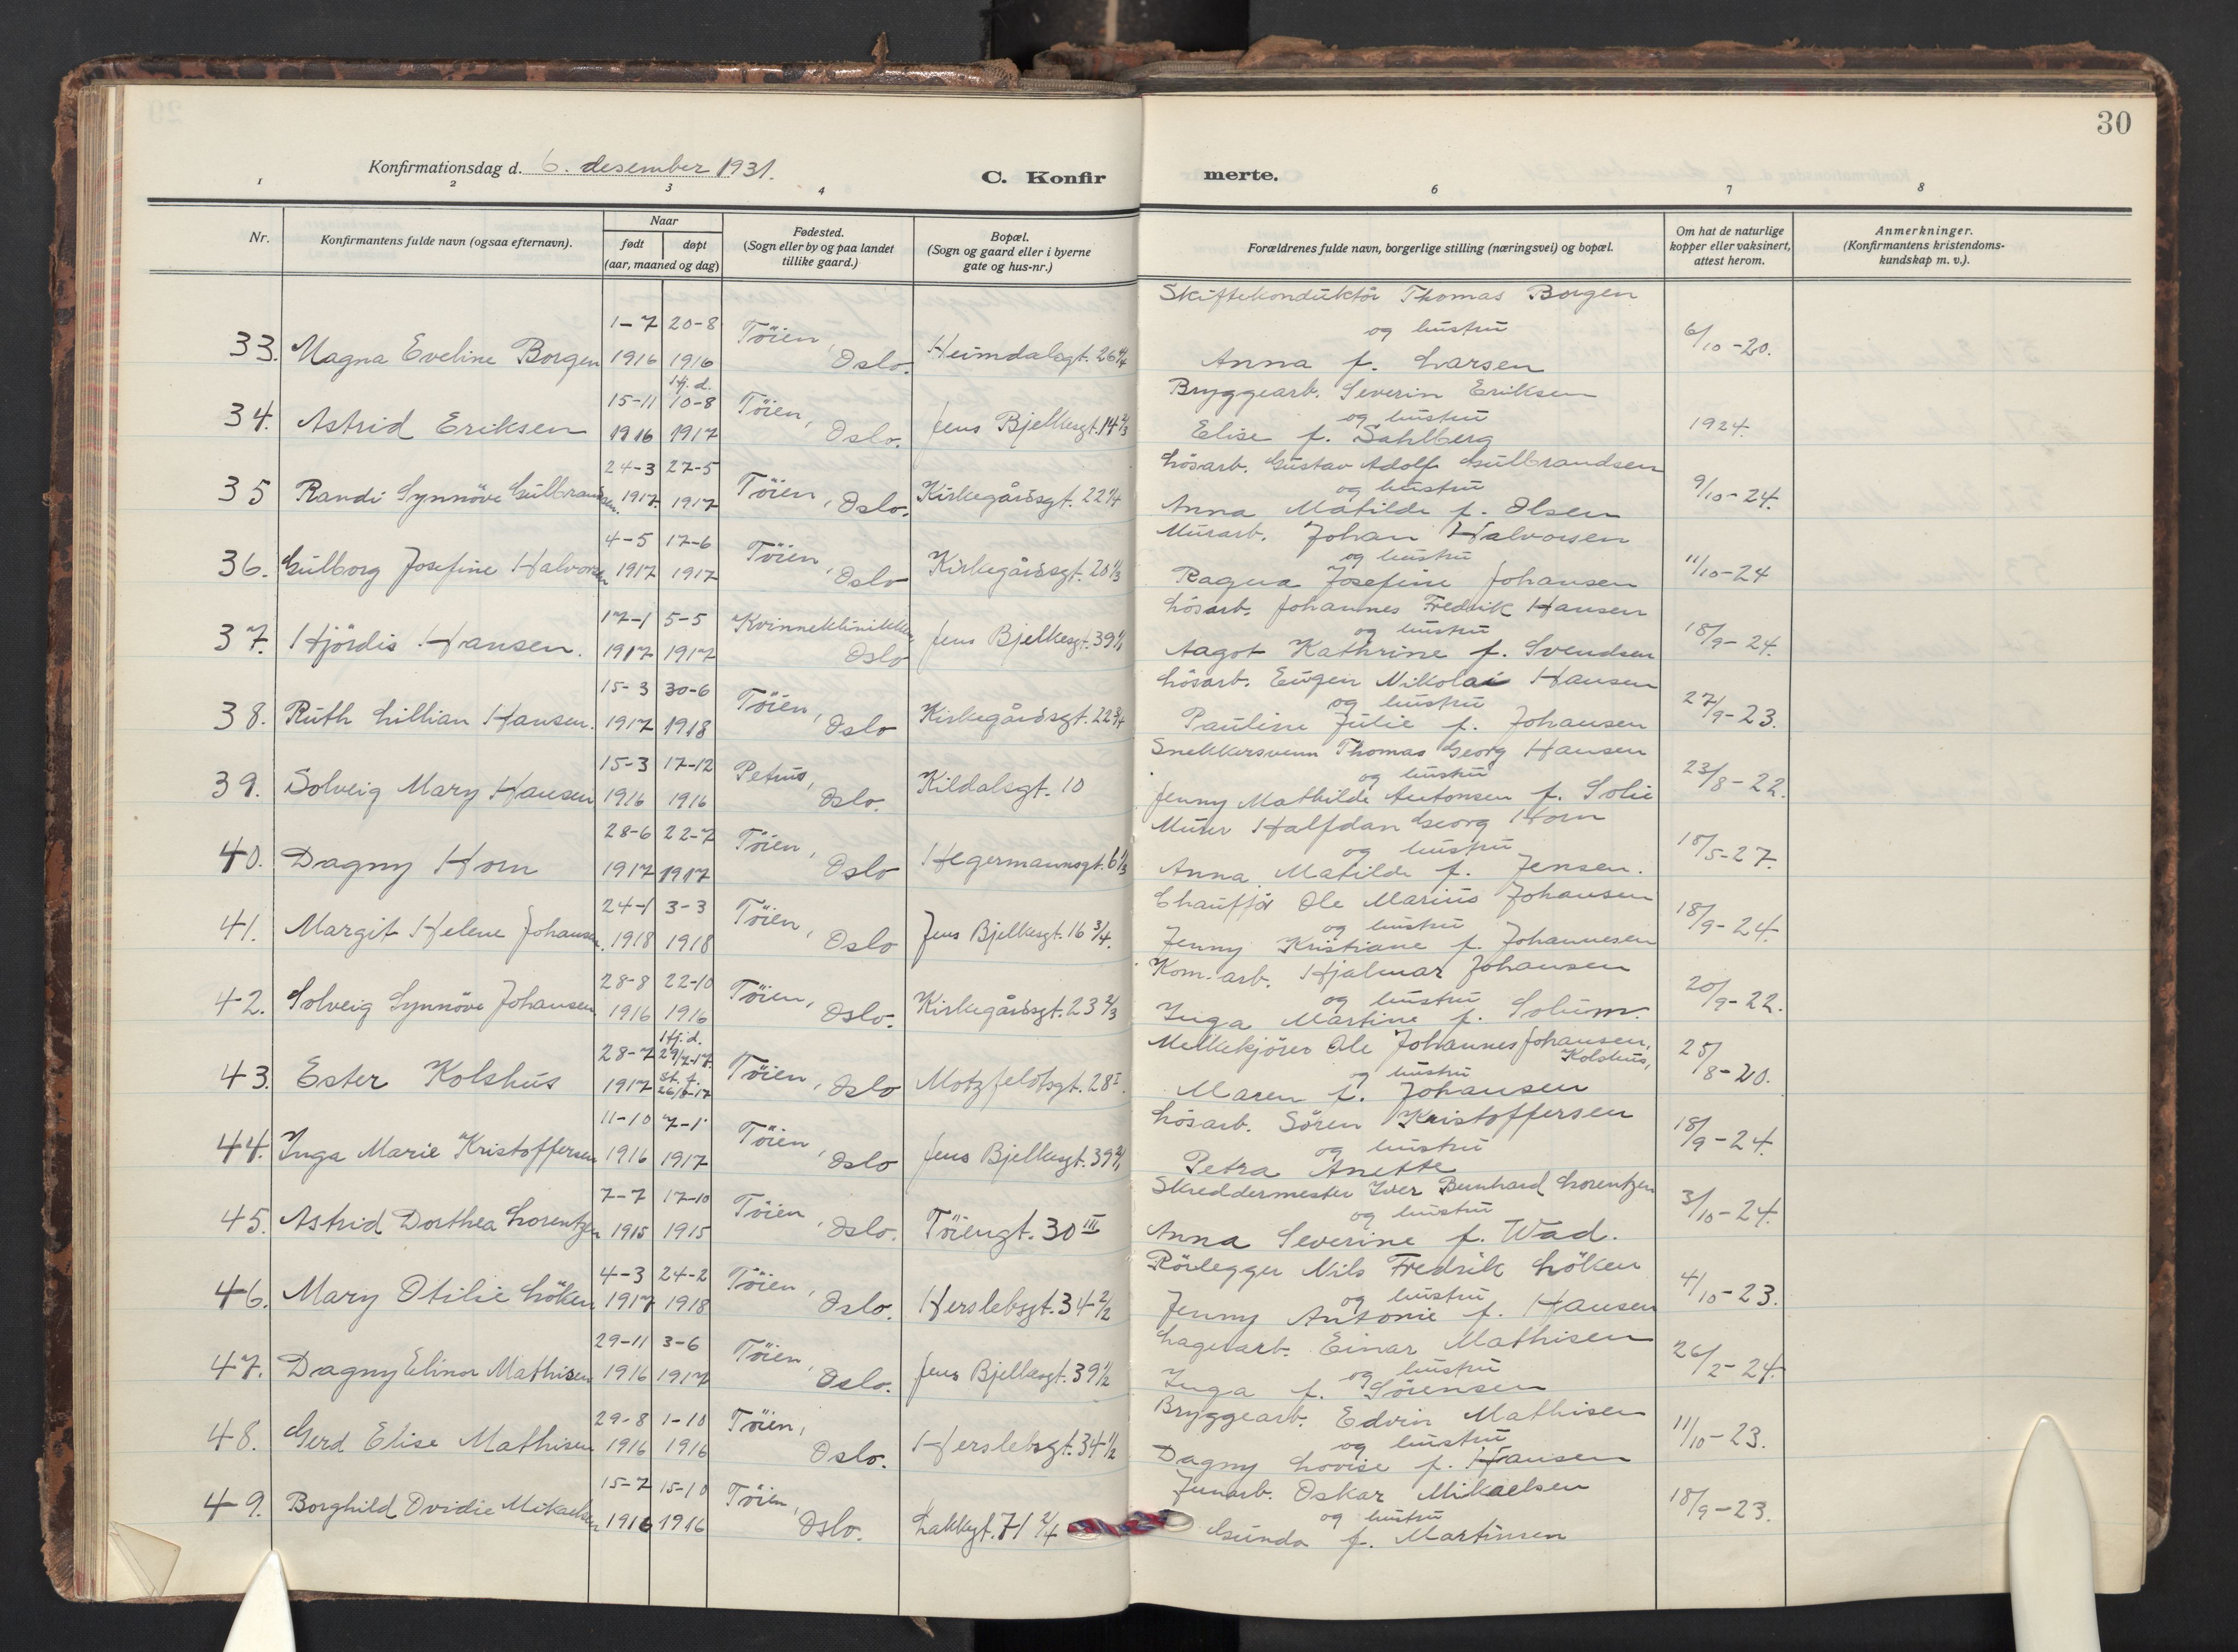 30
Konfirmationsdag d. 6. desember 1931.
C. Konfir
merte.
1 2 3 4
6 7 8
Nr.
Konfirmantens fulde navn (ogsaa efternavn).
Naar
født døpt
(aar, maaned og dag)
Fødested.
(Sogn eller by og paa landet
tillike gaard.)
Bopæl.
(Sogn og gaard eller i byerne
gate og hus-nr.)
Forældrenes fulde navn, borgerlige stilling (næringsvei) og bopæl.
Om hat de naturlige
kopper eller vaksinert,
attest herom.
Anmerkninger.
(Konfirmantens kristendoms-
kundskap m. v.).
Skiftekonduktör Thomas Borgen
1-7 20-8 Töien, og hustru 6/10-20.
33. Magna Eveline Borgen 1916 1916 Oslo. Heimdalsgt. 26 4/4 Anna f. Larsen
Hj. d.
15-11 10-8 Töien, Bryggearb. Severin Eriksen
og hustru
34. Astrid Eriksen 1916 1917 Oslo. Jens Bjelkesgt. 14 2/3 Elise f. Sahlberg 1924.
24-3 27-5 Lösarb. Gustav Adolf Gulbrandsen
og hustru
35 Randi Synnöve Gulbrandsen. 1917. 1917 Töien, Oslo. Kirkegårdsgt. 22 1/4 Anna Matilde f. Olsen 9/10-24.
4-5 17-6 Murarb. Johan Halvorsen
og hustru
36. Gulborg Josefine Halvorsen 1917 1917 Töien, Oslo Kirkegårdsgt. 20 1/3 Ragna Josefine Johansen 11/10-24
17-1 5-5 Lösarb. Johannes Fredrik Hansen
og hustru
37. Hjördis Hansen. 1917 1917 Kvinneklinikken Oslo Jens Bjelkesgt. 39 1/1 Aagot Kathrine f. Svendsen 18/9-24.
15-3 30-6 Lösarb. Eugen Nikolai Hansen
og hustru
38. Ruth Lillian Hansen. 1917 1918 Töien, Oslo Kirkegårdsgt. 22 3/4 Pauline Julie f. Johansen 27/9-23.
15-3 17-12 Snekkersvenn Thomas Georg Hansen
og hustru
39. Solveig Mary Hansen 1916 1916 Petrus, Oslo. Kildalsgt. 10 Jenny Mathilde Antonsen f. Solie 23/8-22.
28-6 22-7 Murer Halfdan Georg Horn
og hustru
40. Dagny Horn 1917 1917 Töien, Oslo Hegermannsgt. 6 1/3 Anna Matilde f. Jensen. 18/5-27.
24-1 3-3 Chaufför Ole Marius Johansen
og hustru
41. Margit Helene Johansen. 1918 1918 Töien, Oslo Jens Bjelkesgt. 16 3/4. Jenny Kristiane f. Johannesen 18/9-24.
28-8 22-10 Kom.-arb. Hjalmar Johansen
og hustru
42. Solveig Synnöve Johansen 1916 1916 Töien, Oslo. Kirkegårdsgt. 23 2/3 Inga Martine f. Solum. 20/9-22.
Hj. d.
28-7 29/7-17. Melkekjörer Ole Johannes Johansen, Kolshus,
og hustru
43. Ester Kolshus 1917 st. f. 26/8-17 Töien, Oslo Motzfeldtsgt. 28 I. Maren f. Johansen 25/8-20.
11-10 7-1 Lösarb. Sören Kristoffersen
og hustru
44. Inga Marie Kristoffersen 1916 1917 Töien, Oslo Jens Bjelkesgt. 39 Petra Anette 18/9-24.
7-7 17-10 Skreddermester Iver Bernhard Lorentzen
og hustru
45. Astrid Dorthea Lorentzen 1915 1915 Töien, Oslo. Töiengt. 30 III Anna Severine f. Wad. 3/10-24.
4-3 24-2 Rörlegger Nils Fredrik Löken
og hustru
46. Mary Otilie Löken 1917 1918 Töien, Oslo. Herslebsgt. 34 2/2 Jenny Antonie f. Hansen 4/10-23.
29-11 3-6 Lagerarb. Einar Mathisen
og hustru
47. Dagny Elinor Mathisen 1916 1917 Töien, Oslo. Jens Bjelkesgt. 39 1/2 Inga f. Sörensen 26/2-24.
29-8 1-10 Bryggearb. Edvin Mathisen
og hustru
48. Gerd Elise Mathisen 1916 1916 Töien, Oslo. Herslebsgt. 34 1/2 Dagny Lovise f. Hansen 11/10-23.
15-7 15-10 Jernarb. Oskar Mikaelsen
og hustru
49. Borghild Ovidie Mikaelsen 1916 1916 Töien, Oslo. Lakkegt. 71 2/4 Gunda f. Martinsen 18/9-23.